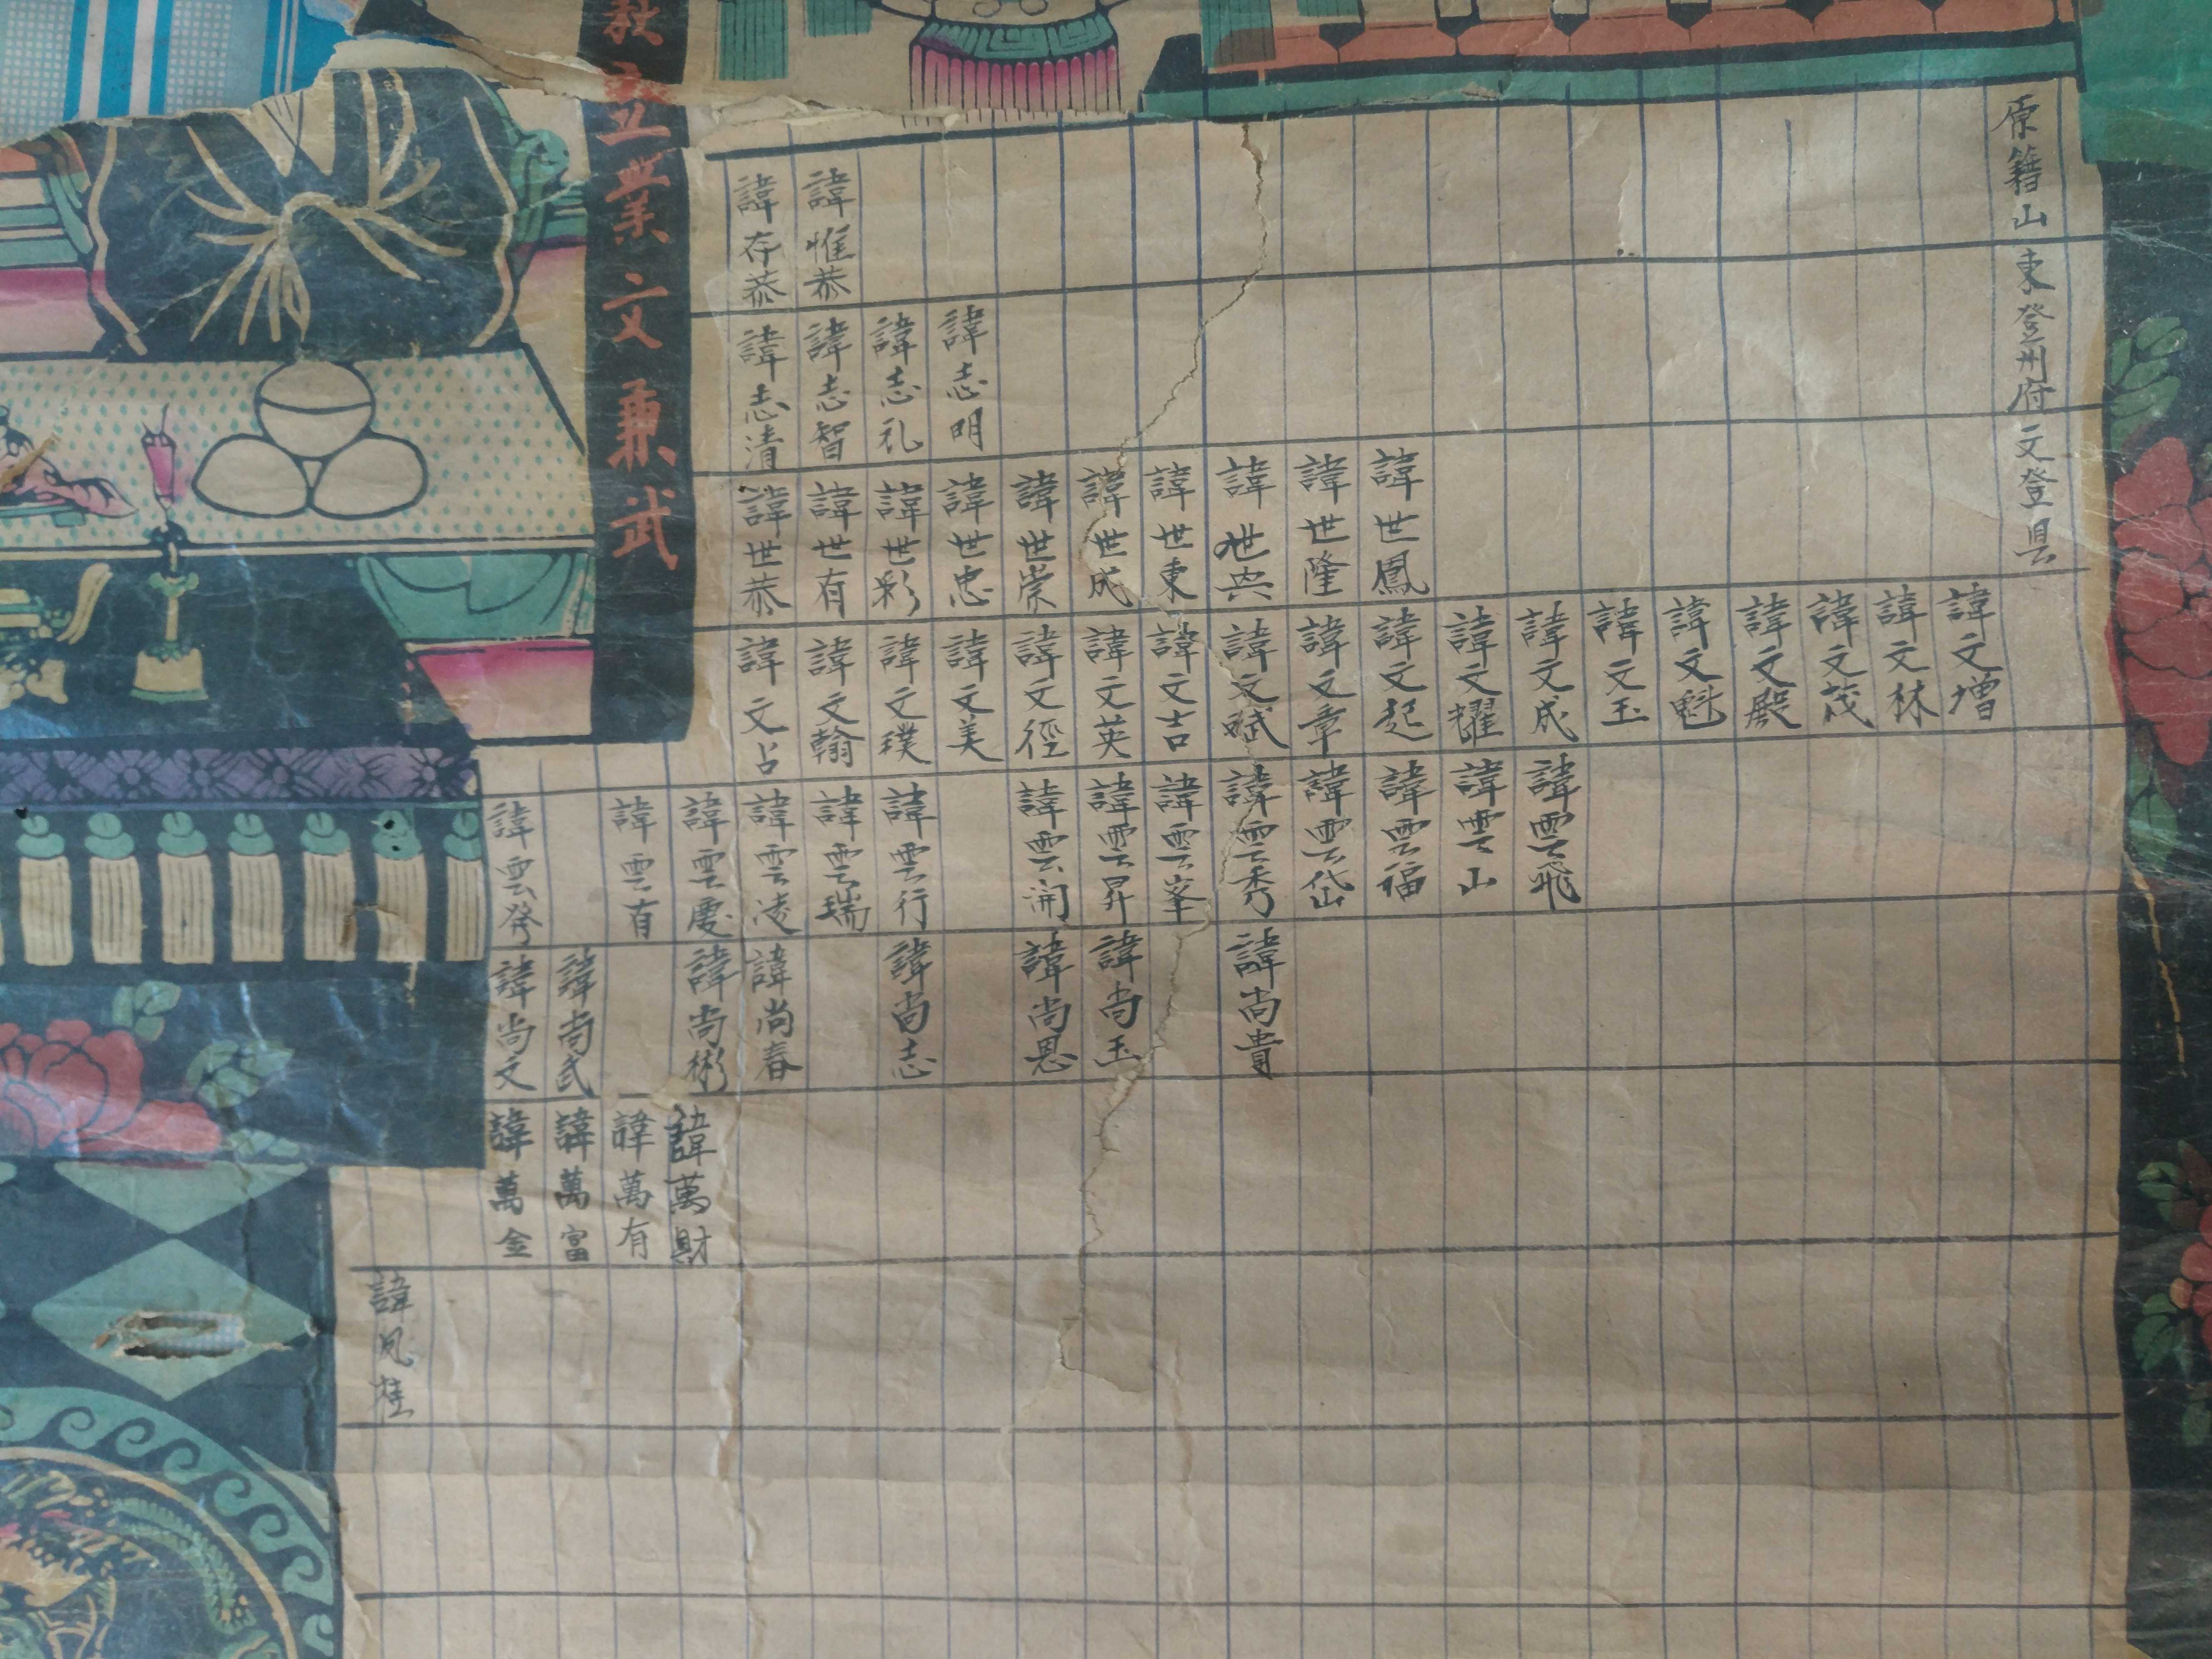 原籍山東登州府文登县
立業文兼武
諱惟恭
諱存恭
諱志明
諱志礼
諱志智
諱志清
諱世鳳
諱世隆
諱世興
諱世東
諱世成
諱世崇
諱世忠
諱世彩
諱世有
諱世恭
諱文增
諱文林
諱文茂
諱文殿
諱文魁
諱文玉
諱文成
諱文耀
諱文起
諱文章
諱文斌
諱文吉
諱文英
諱文徑
諱文美
諱文璞
諱文翰
諱文占
諱雲飛
諱雲山
諱雲福
諱雲岱
諱雲秀
諱雲峯
諱雲昇
諱雲開
諱雲行
諱雲瑞
諱雲凌
諱雲慶
諱雲有
諱雲發
諱尚貴
諱尚玉
諱尚恩
諱尚志
諱尚春
諱尚彬
諱尚武
諱尚文
諱萬財
諱萬有
諱萬富
諱萬金
諱鳳桂